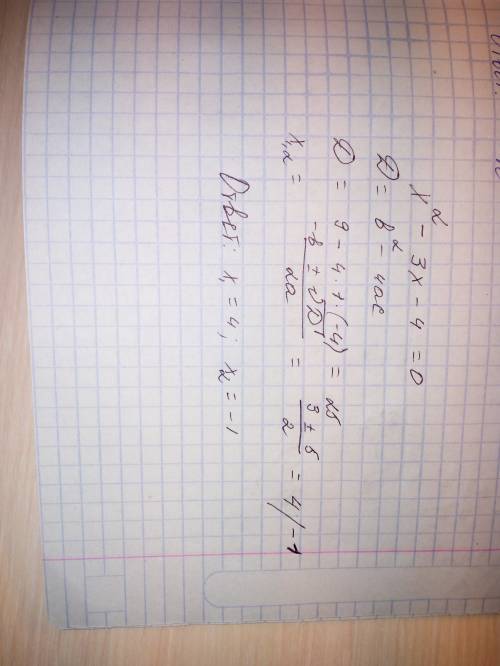 x² - 3x - 4 = 0
D = b² - 4ac
D = 9 - 4·1·(-4) = 25
x₁,₂ = (-b ± √D) / 2a = (3 ± 5) / 2 = 4 / -1
Ответ: x₁ = 4; x₂ = -1